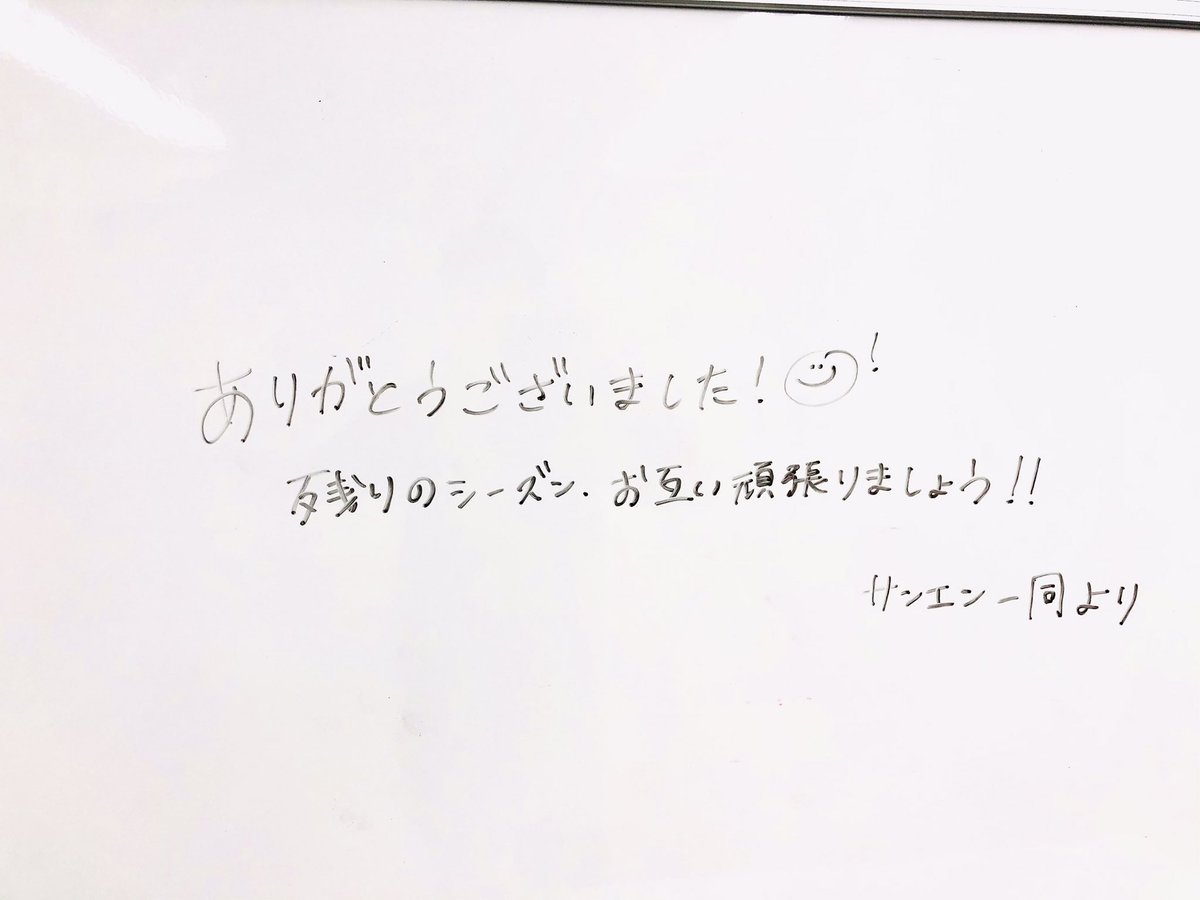 ありがとうございました!☺!
残りのシーズン、お互い頑張りましょう!!
サンエン一同より